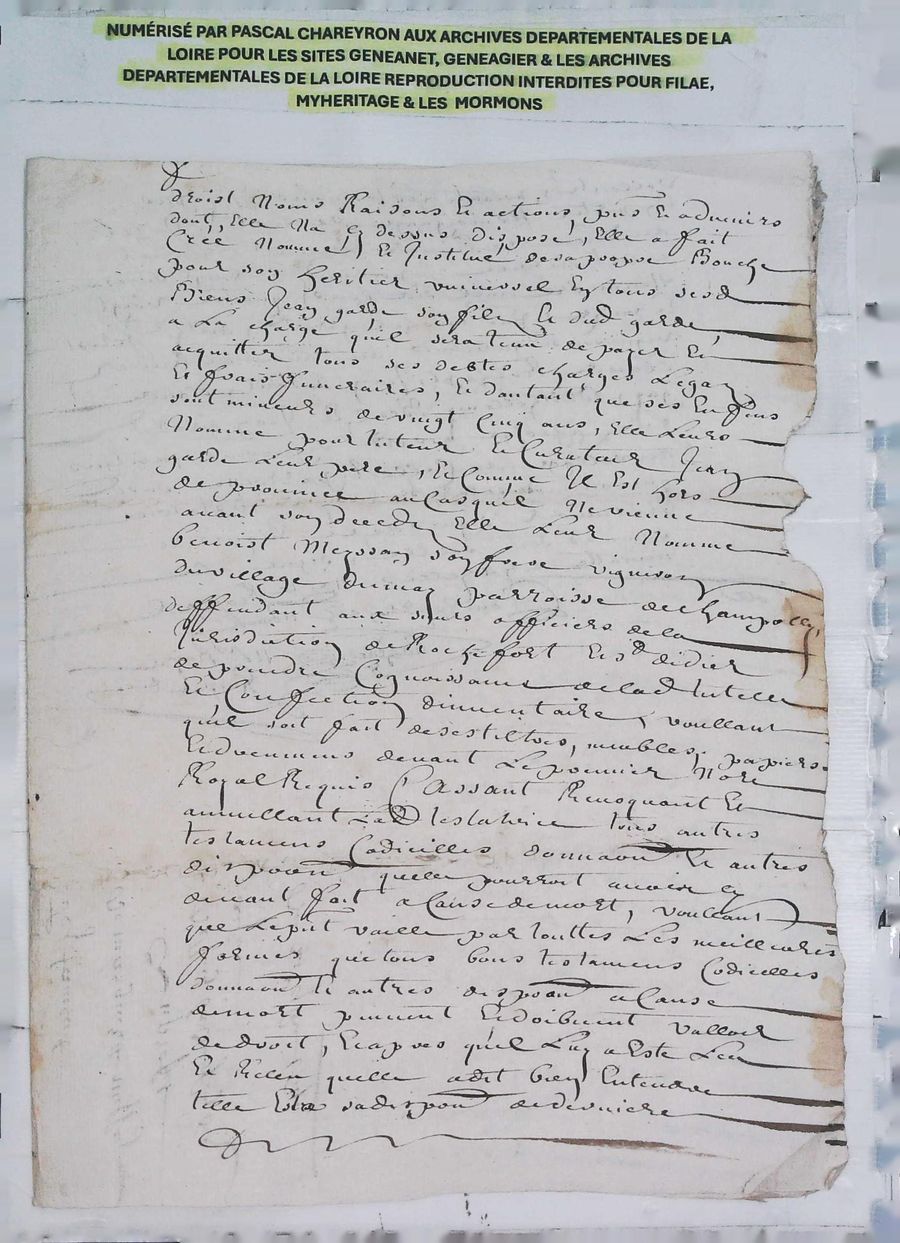 NUMÉRISÉ PAR PASCAL CHAREYRON AUX ARCHIVES DEPARTEMENTALES DE LA
LOIRE POUR LES SITES GENEANET, GENEAGIER & LES ARCHIVES
DEPARTEMENTALES DE LA LOIRE REPRODUCTION INTERDITES POUR FILAE,
MYHERITAGE & LES MORMONS
droist Noms Raisons Et actions, pnts Et advenirs
dont, Elle Na cy dessus dispose, Elle a fait
Créé Nommé, Et Institué de sa propre Bouche
pour son heritier universel En tous sesd
Biens Jean garde son filz Le dud garde
a La charge quil sera tenu de payer Et
acquitter tous ses debtes charges Legaz
Et frais funeraires, Et dautant que ses Enfans
sont mineurs de vingt Cinq ans, Elle Leurs
Nomme pour tuteur Et Curateur Jean
garde Leur pere, Et Comme Il Est hors
de province au Cas quil Ne vienne
avant son deceds Elle Leur Nomme
benoist Meyssan son frere vigneron
du village dumaz parroisse de Champolly,
deffendant aux sieurs officiers de la
Jurisdiction de Rochefort Et st didier
de prendre Cognoissance de lad tutelle
Et Confection dinventaire, voullant
quil soit fait de ses tiltres, meubles, papiers
Et documens devant Le premier Nore
Royal Requis Passant Revoquant Et
annullant Lad testatrice tous autres
testamens Codicilles donnaons Et autres
dispoons quelle pourroit avoir cy
devant fait a Cause de mort, voullant
que Le pnt vaille par touttes Les meilleures
formes que tous bons testamens Codicilles
donnaons Et autres dispoons a Cause
de mort peuvent Et doibvent valloir
de droit, Et apres quil Luy a Este Leu
Et Releu quelle a dit bien Entendre
telle Estre sa dispoon de derniere